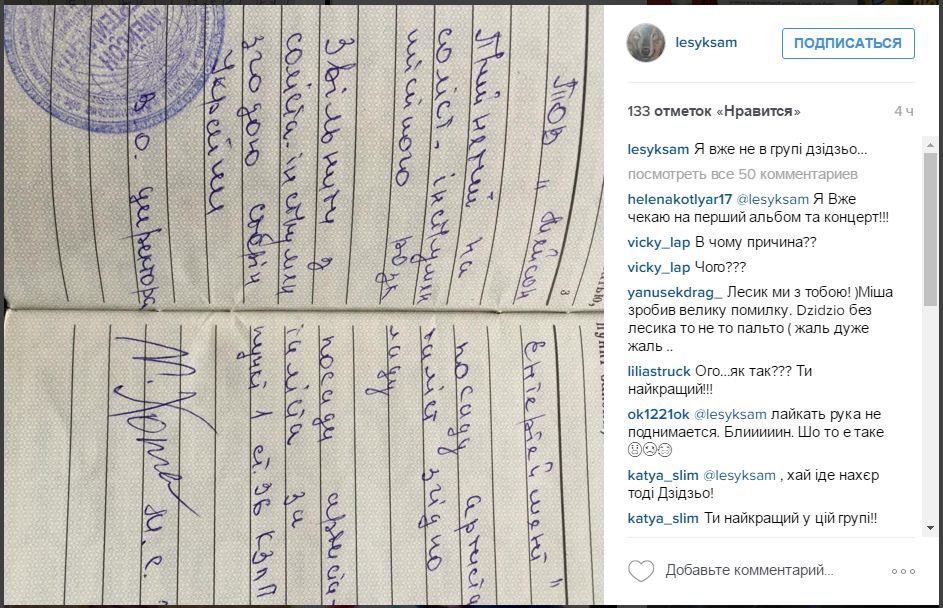 ТОВ "Мейсон Ентертеймент"
Прийнятий на посаду артиста
соліст-інструмен таліст згідно
розк ладу
Звільнити з посади артиста-
соліста-інструмен таліста за
згодою сторін пункт 1 ст. 36 КЗпП
України
В.о. директора М.С.
lesyksam
ПОДПИСАТЬСЯ
133 отметок «Нравится»
4 ч
lesyksam Я вже не в групі дзідзьо...
посмотреть все 50 комментариев
helenakotlyar17 @lesyksam Я Вже
чекаю на перший альбом та концерт!!!
vicky_lap В чому причина??
vicky_lap Чого???
yanusekdrag_ Лесик ми з тобою! )Міша
зробив велику помилку. Dzidzio без
лесика то не то пальто ( жаль дуже
жаль ..
liliastruck Ого...як так??? Ти
найкращий!!!
ok1221ok @lesyksam лайкать рука не
поднимается. Блиииииин. Шо то е таке
katya_slim @lesyksam , хай іде нахєр
тоді Дзідзьо!
katya_slim Ти найкращий у цій групі!!
Добавьте комментарий...